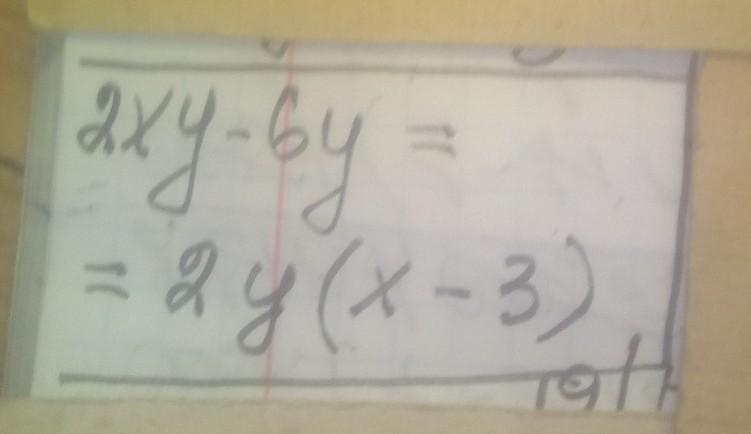 2xy-6y=
=2y(x-3)